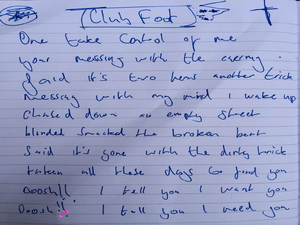 Club Foot
One take control of me
your messing with the enemy
said it's two hens another trick
messing with my mind I wake up
chased down an empty street
blinded smacked the broken beat
Said it's gone with the dirty trick
taken all these days to find you
ooosh!! I tell you I want you
ooosh!! I tell you I need you